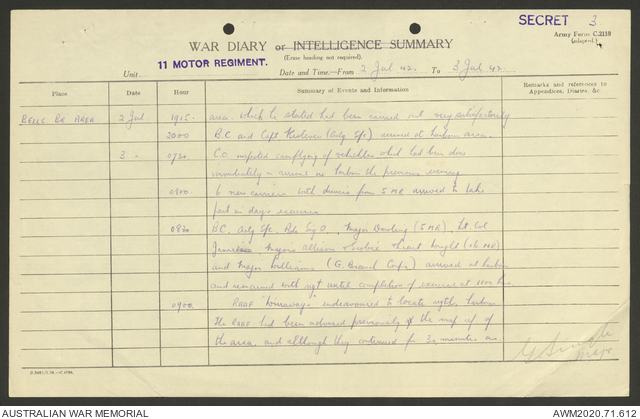 SECRET 3
Army Form C.2118
(adapted.)
WAR DIARY or INTELLIGENCE SUMMARY
(Erase heading not required).
11 MOTOR REGIMENT.
Unit
Date and Time—From 2 Jul 42. To 3 Jul 42.
Place Date Hour Summary of Events and Information Remarks and references to Appendices, Diaries, &c
BELLS Area 2 Jul 1915 area which he stated had been carried out very satisfactorily
2000 B.C. and Capt (Arty Sfc) arrived at harbour area.
3 0730 C.O. inspected camouflaging of vehicles which had been done
immediately on arrival in harbour the previous evening
0800 6 new carriers with drivers from 5 MR arrived to take
part in day's exercise
0830 B.C. Arty Sfc, Bde Sig O, Major Dowling (5 MR), Lt. Col
Majors Allison Lieut Wright (16 MR)
and Major Williams (G. Branch Corps) arrived at harbour
and remained with rgt until completion of exercise at 1100 hrs.
0900 RAAF "Wirraways" endeavoured to locate harbour
The RAAF had been advised previously of the map ref of
the area, and although they continued for 3¼ minutes on
Major
AUSTRALIAN WAR MEMORIAL
AWM2020.71.612